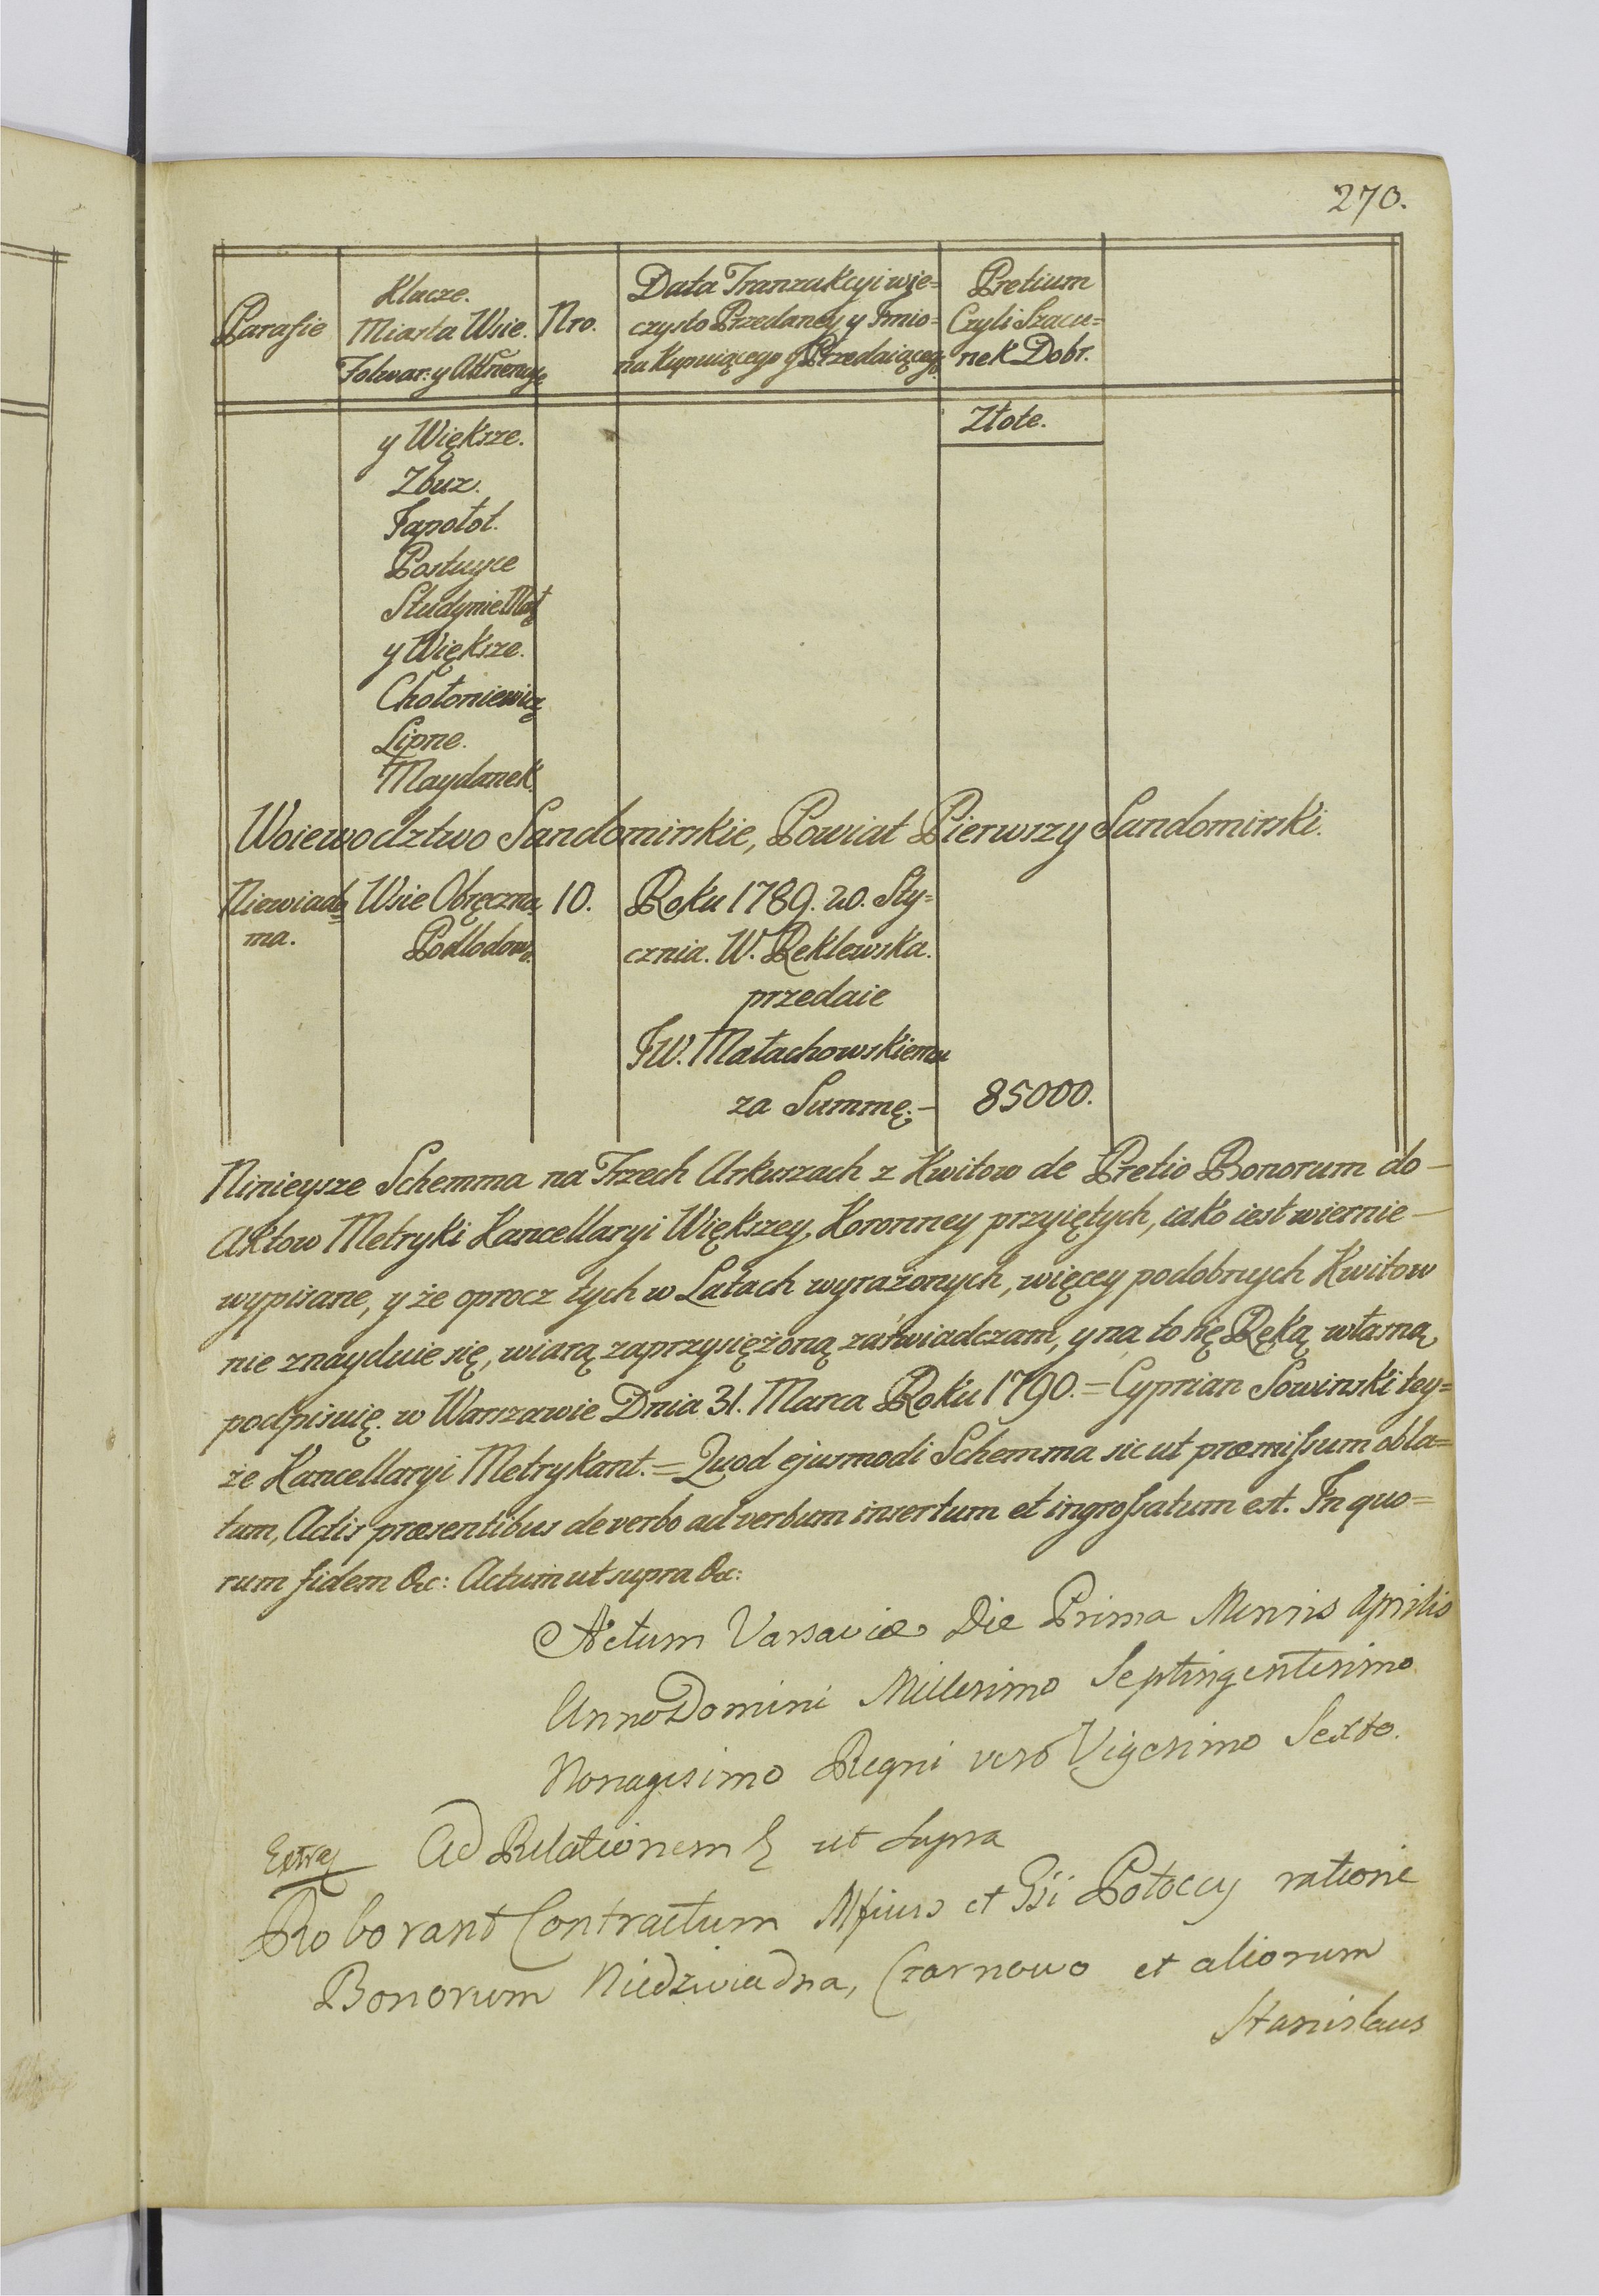 270.
Parafie
Klucze.
Miasta Wsie.
Folwar: y Attnencye
Nro.
Data Tranzakcyi wie=
czysto Przedaney y Imio=
na Kupuiącego y Przedaiącego.
Pretium
Czyli Szacu=
nek Dobr.
Złote.
y Większe.
Zbuz.
Japołoł.
Postuyne
Studynie Mał
y Większe.
Chołoniewicz
Lipne.
Maydanek.
Woiewodztwo Sandomirskie, Powiat Pierwszy Sandomirski.
Niewiado
ma.
Wsie Obręczna,
Podlodow.
10.
Roku 1789. 20. Sty=
cznia. W. Reklewska.
przedaie
JW. Małachowskiemu
za Summę.–
85000.
Ninieysze Schemma na Trzech Arkuszach z Kwitow de Pretio Bonorum do –
Aktow Metryki Kancellaryi Większey Koronney przyiętych, iako iest wiernie –
wypisane, y że oprocz tych w Latach wyrażonych, więcey podobnych Kwitow
nie znayduie się, wiarą zaprzysiężoną zaświadczam, y na to się Ręką własną
podpisuię. w Warszawie Dnia 31. Marca Roku 1790. = Cyprian Sowinski tey=
że Kancellaryi Metrykant. = Quod ejusmodi Schemma sic ut præmissum obla=
tum, Actis præsentibus de verbo ad verbum insertum et ingrossatum est. In quo=
rum fidem &c: Actum ut supra &c:
Actum Varsaviæ Die Prima Mensis Aprilis
Anno Domini Millesimo Septingentesimo
Nonagesimo Regni vero Vigesimo Sexto.
Ad Relationem ut supra
Roborant Contractum Mfius et Gsi Potoccy ratione
Bonorum Niedzwiadna, Czarnowo et aliorum
Stanislaus